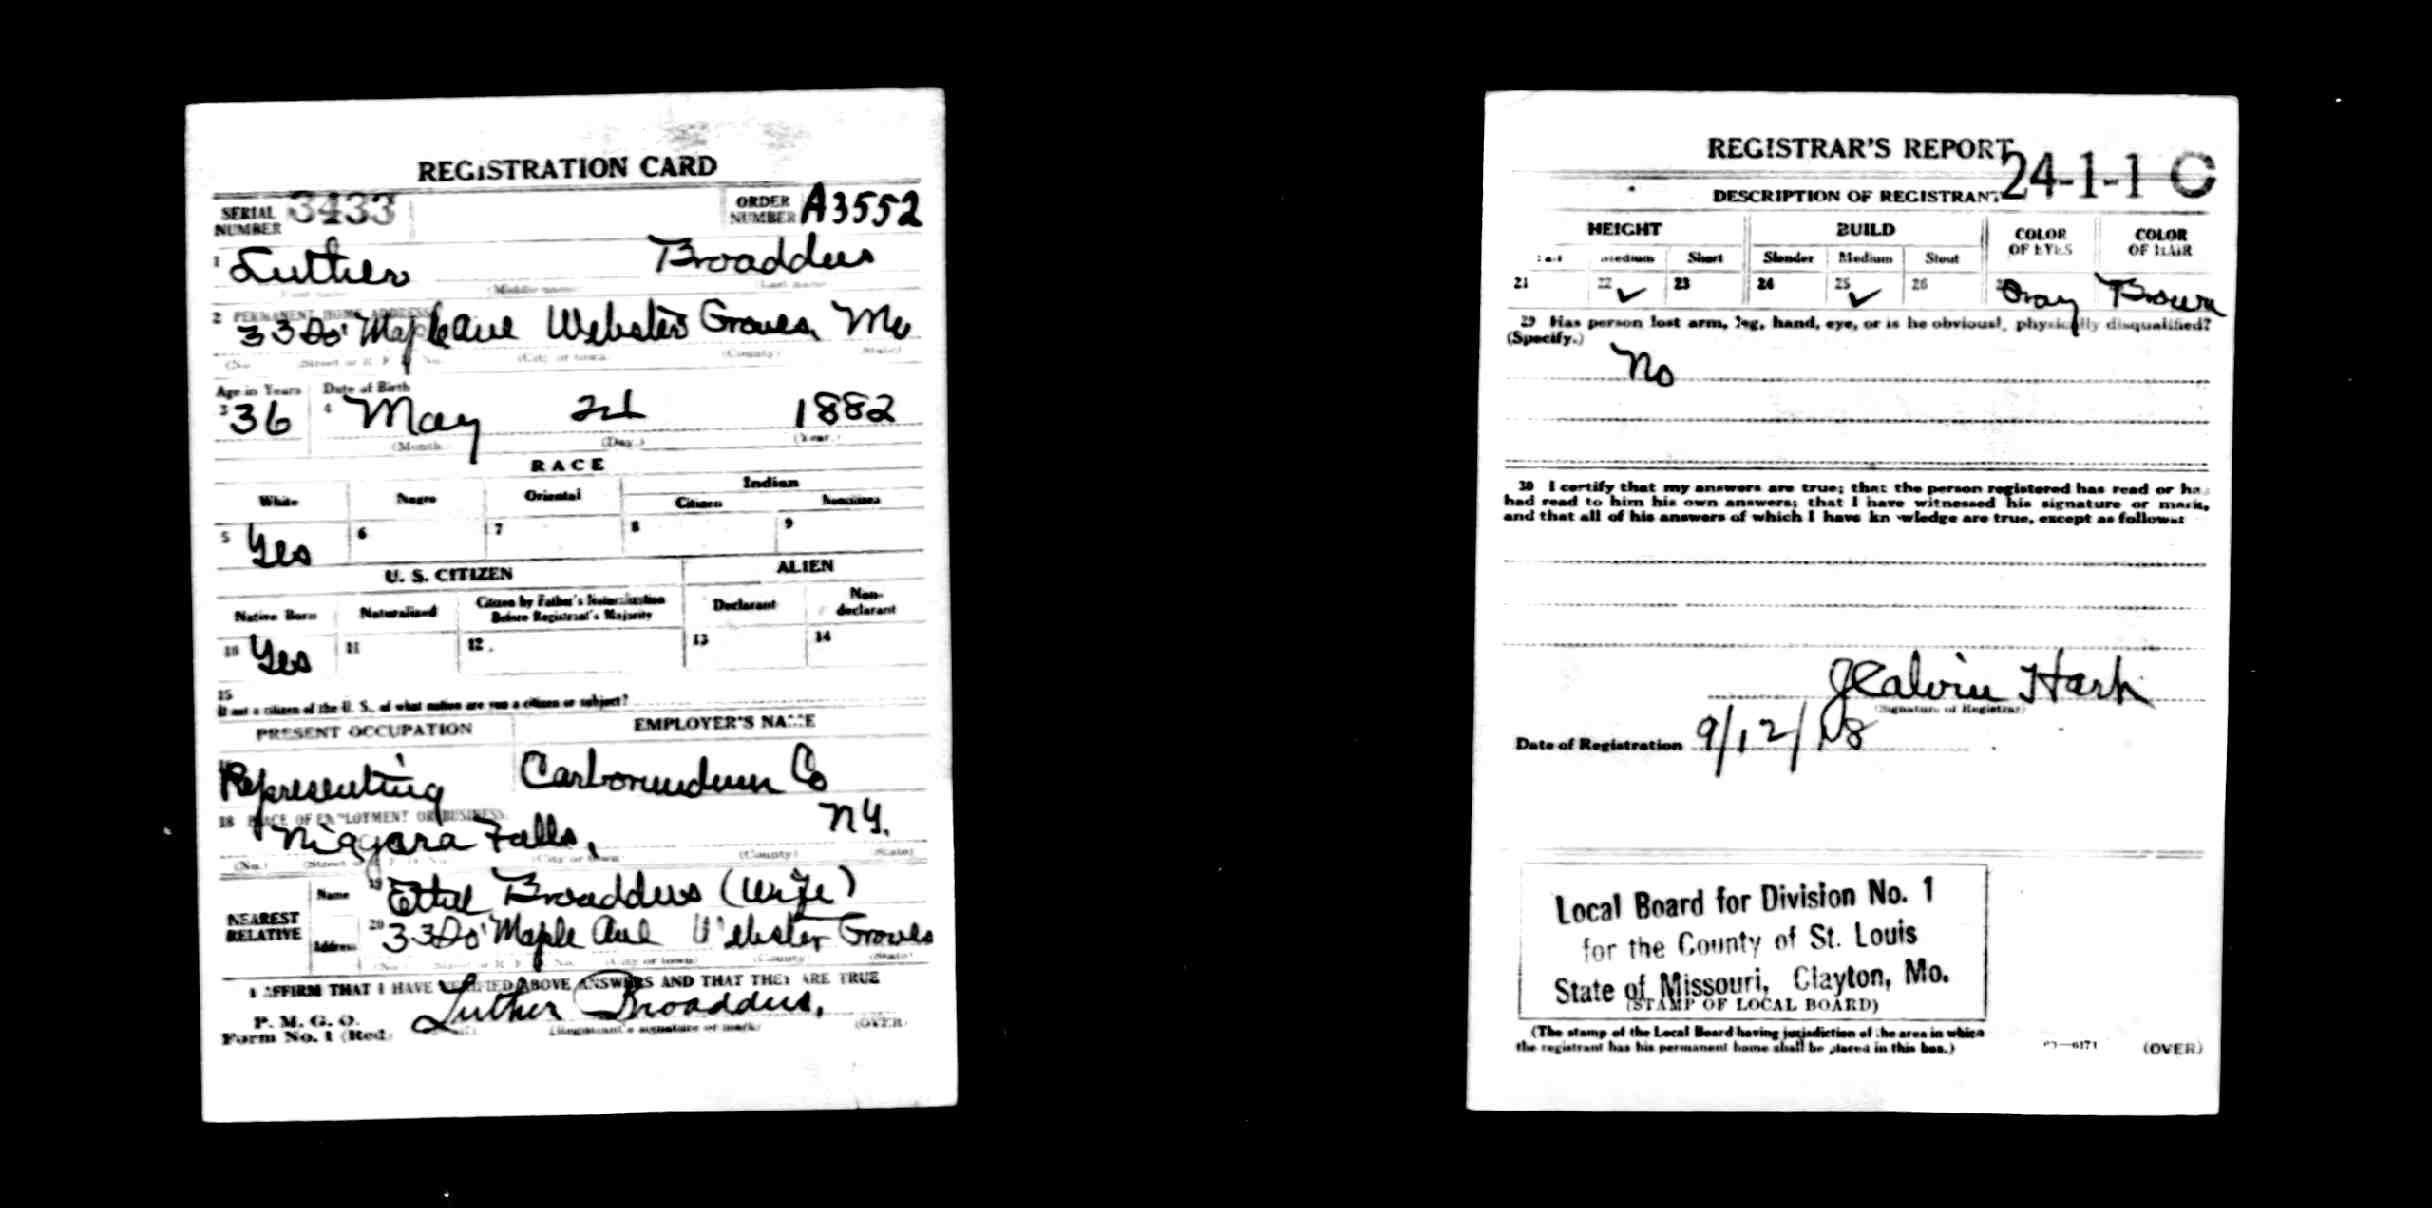 REGISTRATION CARD
SERIAL NUMBER 3433
ORDER NUMBER A3552
1 Luther Broaddus
(Middle name) (Last name)
2 PERMANENT HOME ADDRESS
33 So' Maple Ave Webster Groves, Mo
(No.) (Street or R. F. D. No.) (City or town) (County) (State)
Age in Years Date of Birth
3 36 4 May 2d 1882
(Month) (Day.) (Year.)
RACE
White Negro Oriental Indian
Citizen Noncitizen
5 Yes 6 7 8 9
U. S. CITIZEN ALIEN
Native Born Naturalized Citizen by Father's Naturalization Before Registrant's Majority Declarant Non-declarant
10 Yes 11 12 13 14
15
If not a citizen of the U. S., of what nation are you a citizen or subject?
PRESENT OCCUPATION EMPLOYER'S NAME
Representing Carborundum Co
18 PLACE OF EMPLOYMENT OR BUSINESS
Niagara Falls, N.Y.
(No.) (Street or R. F. D. No.) (City or town) (County) (State)
NEAREST RELATIVE
Name 19 Ethel Broaddus (Wife)
Address 20 33 So' Maple Ave Webster Groves
(No.) (Street or R. F. D. No.) (City or town) (County) (State)
I AFFIRM THAT I HAVE VERIFIED ABOVE ANSWERS AND THAT THEY ARE TRUE
P. M. G. O.
Form No. 1 (Red) Luther Broaddus,
(Registrant's signature or mark) (OVER)
REGISTRAR'S REPORT
24-1-1 C
DESCRIPTION OF REGISTRANT
HEIGHT BUILD COLOR OF EYES COLOR OF HAIR
Tall Medium Short Slender Medium Stout
21 22 ✓ 23 24 25 ✓ 26 Gray Brown
29 Has person lost arm, leg, hand, eye, or is he obviously physically disqualified?
(Specify.)
No
30 I certify that my answers are true; that the person registered has read or has
had read to him his own answers; that I have witnessed his signature or mark,
and that all of his answers of which I have knowledge are true, except as follows:
(Signature of Registrar)
Date of Registration 9/12/18
Local Board for Division No. 1
for the County of St. Louis
State of Missouri, Clayton, Mo.
(STAMP OF LOCAL BOARD)
(The stamp of the Local Board having jurisdiction of the area in which
the registrant has his permanent home shall be placed in this box.)
(OVER)